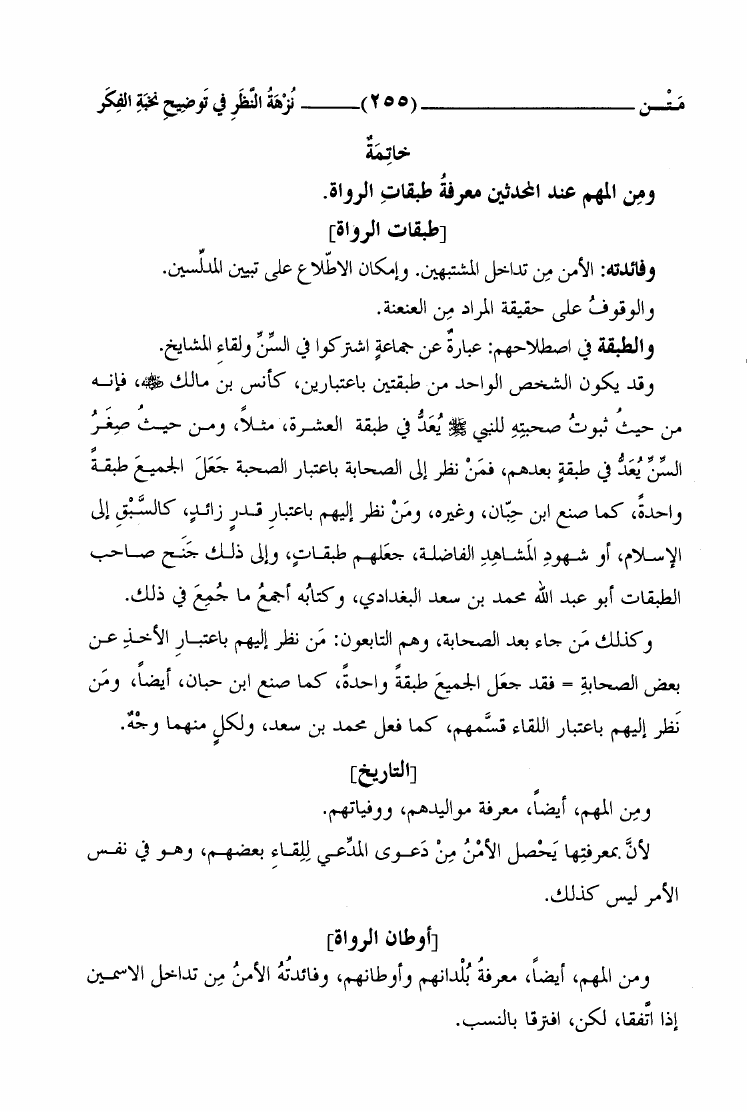 مَتْـــن ـــــــــــــــــ (٢٥٥) ـــــــ نُزْهَةُ النَّظَرِ في تَوضِيحِ نخبَةِ الفِكَر
خاتِمَةٌ
ومِن المهم عند المحدثين معرفةُ طبقاتِ الرواة.
[طبقات الرواة]
وفائدته: الأمن مِن تداخل المشتبهين. وإمكان الاطّلاع على تبيين المدلِّسين.
والوقوفُ على حقيقة المراد مِن العنعنة.
والطبقة في اصطلاحهم: عبارةٌ عن جماعةٍ اشتركوا في السِّنِّ ولقاءِ المشايخ.
وقد يكون الشخص الواحد من طبقتين باعتبارين، كأنس بن مالك ﵁، فإنه
من حيثُ ثبوتُ صحبتِهِ للنبي ﷺ يُعَدُّ في طبقة العشرة، مثلاً، ومن حيثُ صِغَرُ
السِّنِّ يُعَدُّ في طبقةٍ بعدهم، فمَنْ نظر إلى الصحابة باعتبار الصحبة جَعَلَ الجميعَ طبقةً
واحدةً، كما صنع ابن حِبّان، وغيره، ومَنْ نظر إليهم باعتبارِ قدرٍ زائدٍ، كالسَّبْقِ إلى
الإسلام، أو شهودِ المَشاهِدِ الفاضلة، جعَلهم طبقاتٍ، وإلى ذلك جَنَح صاحب
الطبقات أبو عبد الله محمد بن سعد البغدادي، وكتابُه أجمعُ ما جُمِعَ في ذلك.
وكذلك مَن جاء بعد الصحابة، وهم التابعون: مَن نظر إليهم باعتبارِ الأخذِ عن
بعض الصحابةِ = فقد جعَل الجميعَ طبقةً واحدةً، كما صنع ابن حبان، أيضاً، ومَن
نَظر إليهم باعتبار اللقاء قسَّمهم، كما فعل محمد بن سعد، ولكلٍ منهما وجْهٌ.
[التاريخ]
ومِن المهم، أيضاً، معرفة مواليدهم، ووفياتهم.
لأنَّ بمعرفتِها يَحْصل الأمْنُ مِنْ دَعوى المدَّعي لِلِقاءِ بعضهم، وهو في نفس
الأمر ليس كذلك.
[أوطان الرواة]
ومن المهم، أيضاً، معرفةُ بُلْدانهم وأوطانهم، وفائدتُهُ الأمنُ مِن تداخل الاسمين
إذا اتّفقا، لكن، افترقا بالنسب.